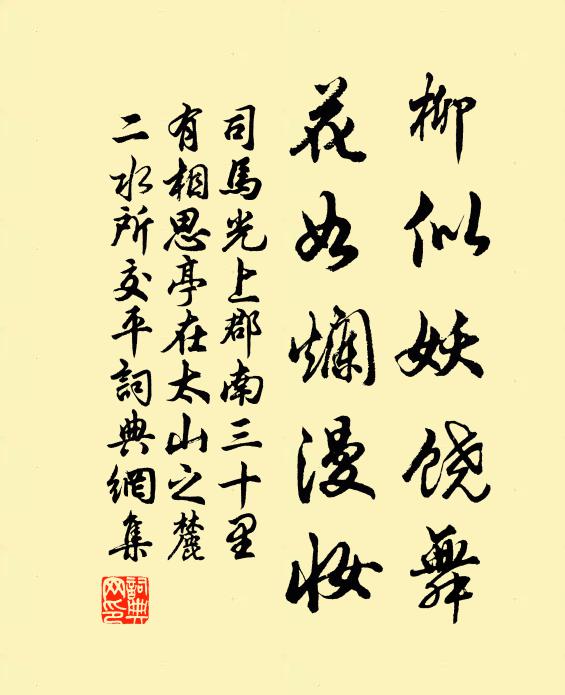 柳似妖饶舞
花如爛漫妝
司馬光上郡南三十里
有相思亭在太山之麓
二水所交平詞典網集